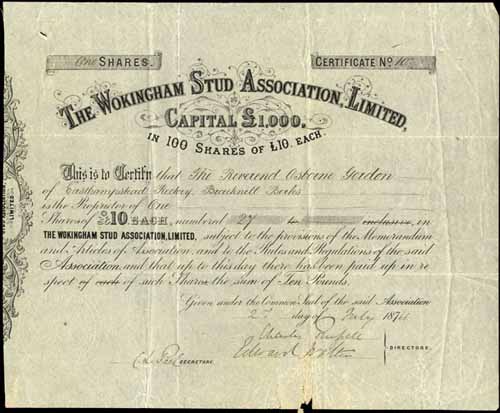 One SHARES. CERTIFICATE No 10
THE WOKINGHAM STUD ASSOCIATION, LIMITED,
CAPITAL £1,000.
IN 100 SHARES OF £10. EACH.
This is to Certify that The Reverend Osborne Gordon
of Easthampstead Rectory, Bracknell Berks
is the Proprietor of One
Shares of £10 EACH, numbered 27 to inclusive, in
THE WOKINGHAM STUD ASSOCIATION, LIMITED, subject to the provisions of the Memorandum
and Articles of Association, and to the Rules and Regulations of the said
Association, and that up to this day there has been paid up in re
spect of each of such Shares the sum of Ten Pounds.
Given under the Common Seal of the said Association
27 day of July 187
Charles Russell
Edward
DIRECTORS.
SECRETARY.
LIMITED